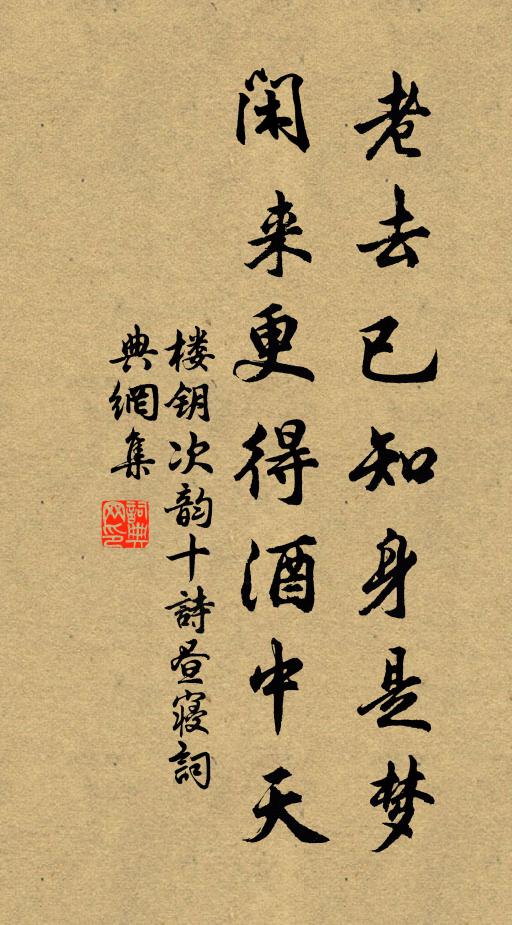 老去已知身是梦
闲来更得酒中天
楼钥次韵十詩昼寝詞
典網集
詞典网印